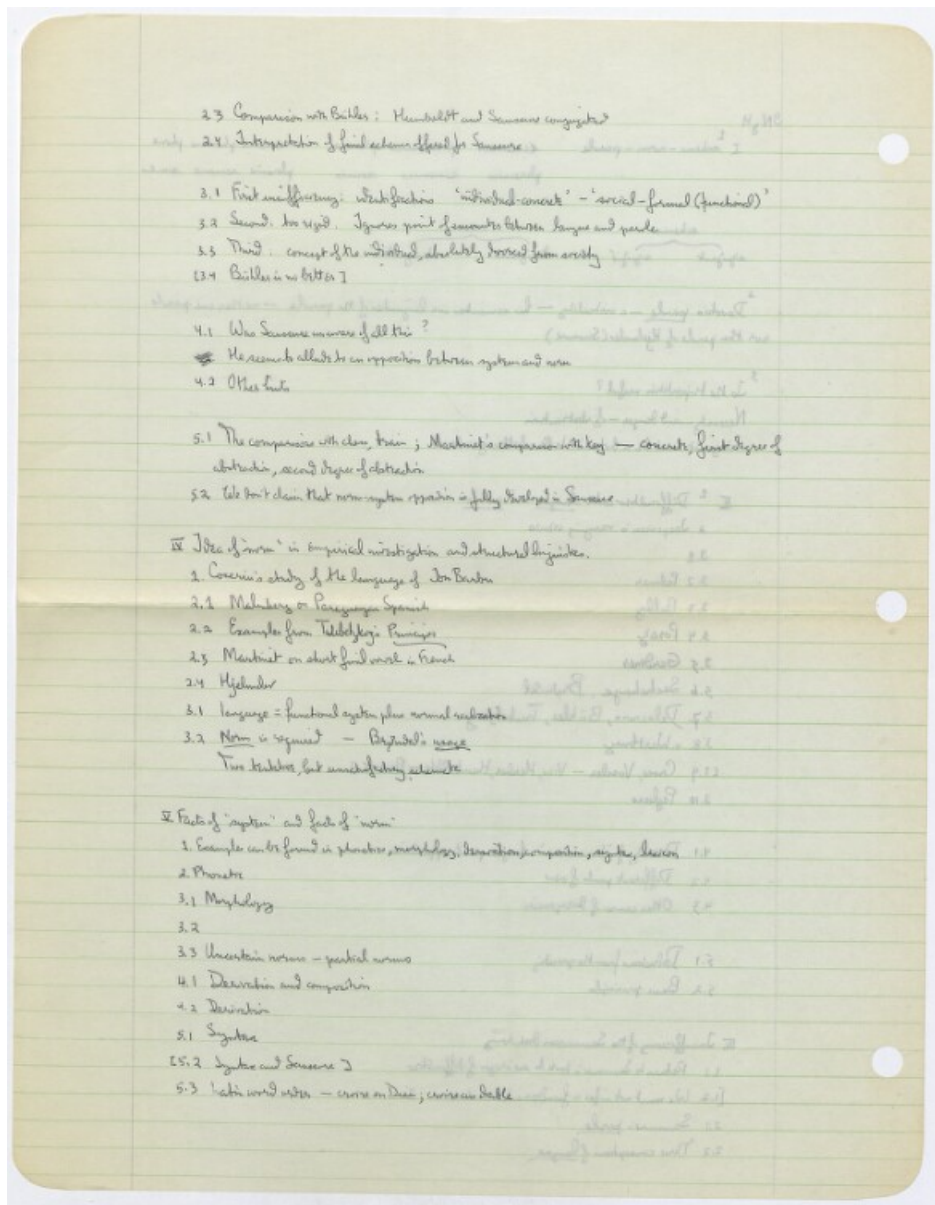 2.3 Comparison with Bühler: Humboldt and Saussure conjugated
2.4 Interpretation of final scheme offered for Saussure
3.1 First insufficiency: identifications "individual-concrete" – "social-formal (functional)"
3.2 Second: too rigid. Ignores point of encounter between langue and parole
3.3 Third: concept of the individual, absolutely divorced from society
[3.4 Bühler is no better]
4.1 Was Saussure unaware of all this?
He seems to allude to an opposition between system and norm
4.2 Other hints
5.1 The comparison with chess, train; Martinet's comparison with key — concrete, first degree of
abstraction, second degree of abstraction
5.2 We don't claim that norm-system opposition is fully developed in Saussure
IV Idea of "norm" in empirical investigation and structural linguistics.
1. Coseriu's study of the language of Ion Barbu
2.1 Malmberg on Paraguayan Spanish
2.2 Examples from Trubetzkoy's Principes
2.3 Martinet on short final vowel in French
2.4 Hjelmslev
3.1 language = functional system plus normal realization
3.2 Norm is required — Brøndal's usage
Two tentative, but unsatisfactory schemata
V Facts of "system" and facts of "norm"
1. Examples can be found in phonetics, morphology, derivation, composition, syntax, lexicon
2. Phonetic
3.1 Morphology
3.2
3.3 Uncertain norms – partial norms
4.1 Derivation and composition
4.2 Derivation
5.1 Syntax
[5.2 Syntax and Saussure]
5.3 Latin word order —